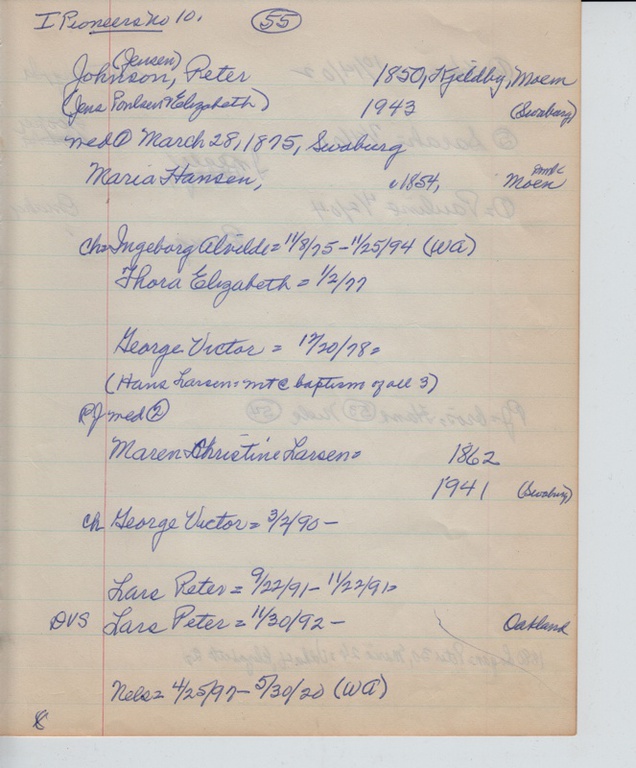 I Pioneers No 10. 55
(Jensen)
Johnson, Peter 1850, Kjeldby, Moem
(Jens Poulsen & Elizabeth) 1943 (Swaburg)
med ① March 28, 1875, Swaburg
Maria Hansen, c1854, Moen
ch = Ingeborg Alvilde = 11/8/75 - 11/25/94 (WA)
Thora Elizabeth = 1/2/77
George Victor = 12/20/78 =
(Hans Larsen = mt @ baptism of all 3)
PJ med ②
Maren Christine Larsen = 1862
1941 (Swaburg)
ch George Victor = 3/2/90 -
Lars Peter = 9/22/91 - 11/22/91 =
DVS Lars Peter = 11/30/92 - Oakland
Nels = 4/25/97 - 5/30/20 (WA)
8